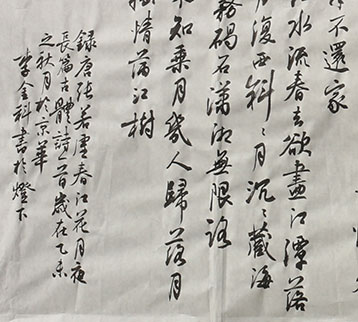 不還家
江水流春去欲盡江潭落
月復西斜〻月沉〻藏海
霧碣石瀟湘無限路
知乘月幾人歸落月
搖情滿江樹
錄唐張若虛春江花月夜
長篇古體詩一首歲在乙未
之秋月於京華
李金科書於燈下